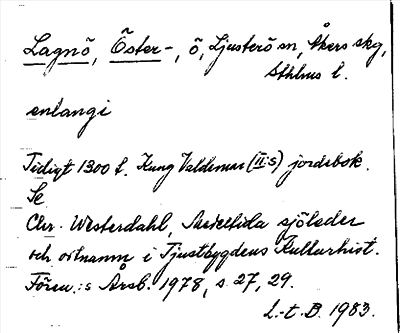 Lagnö, Öster-, ö, Ljusterö sn, Åkers skg,
Sthlms l.
enlangi
Tidigt 1300 t. Kung Valdemar (II:s) jordebok.
Se
Chr. Westerdahl, Medeltida sjöleder
och ortnamn i Tjustbygdens Kulturhist.
Fören.:s Årsb. 1978, s. 27, 29.
L-t. B. 1983.